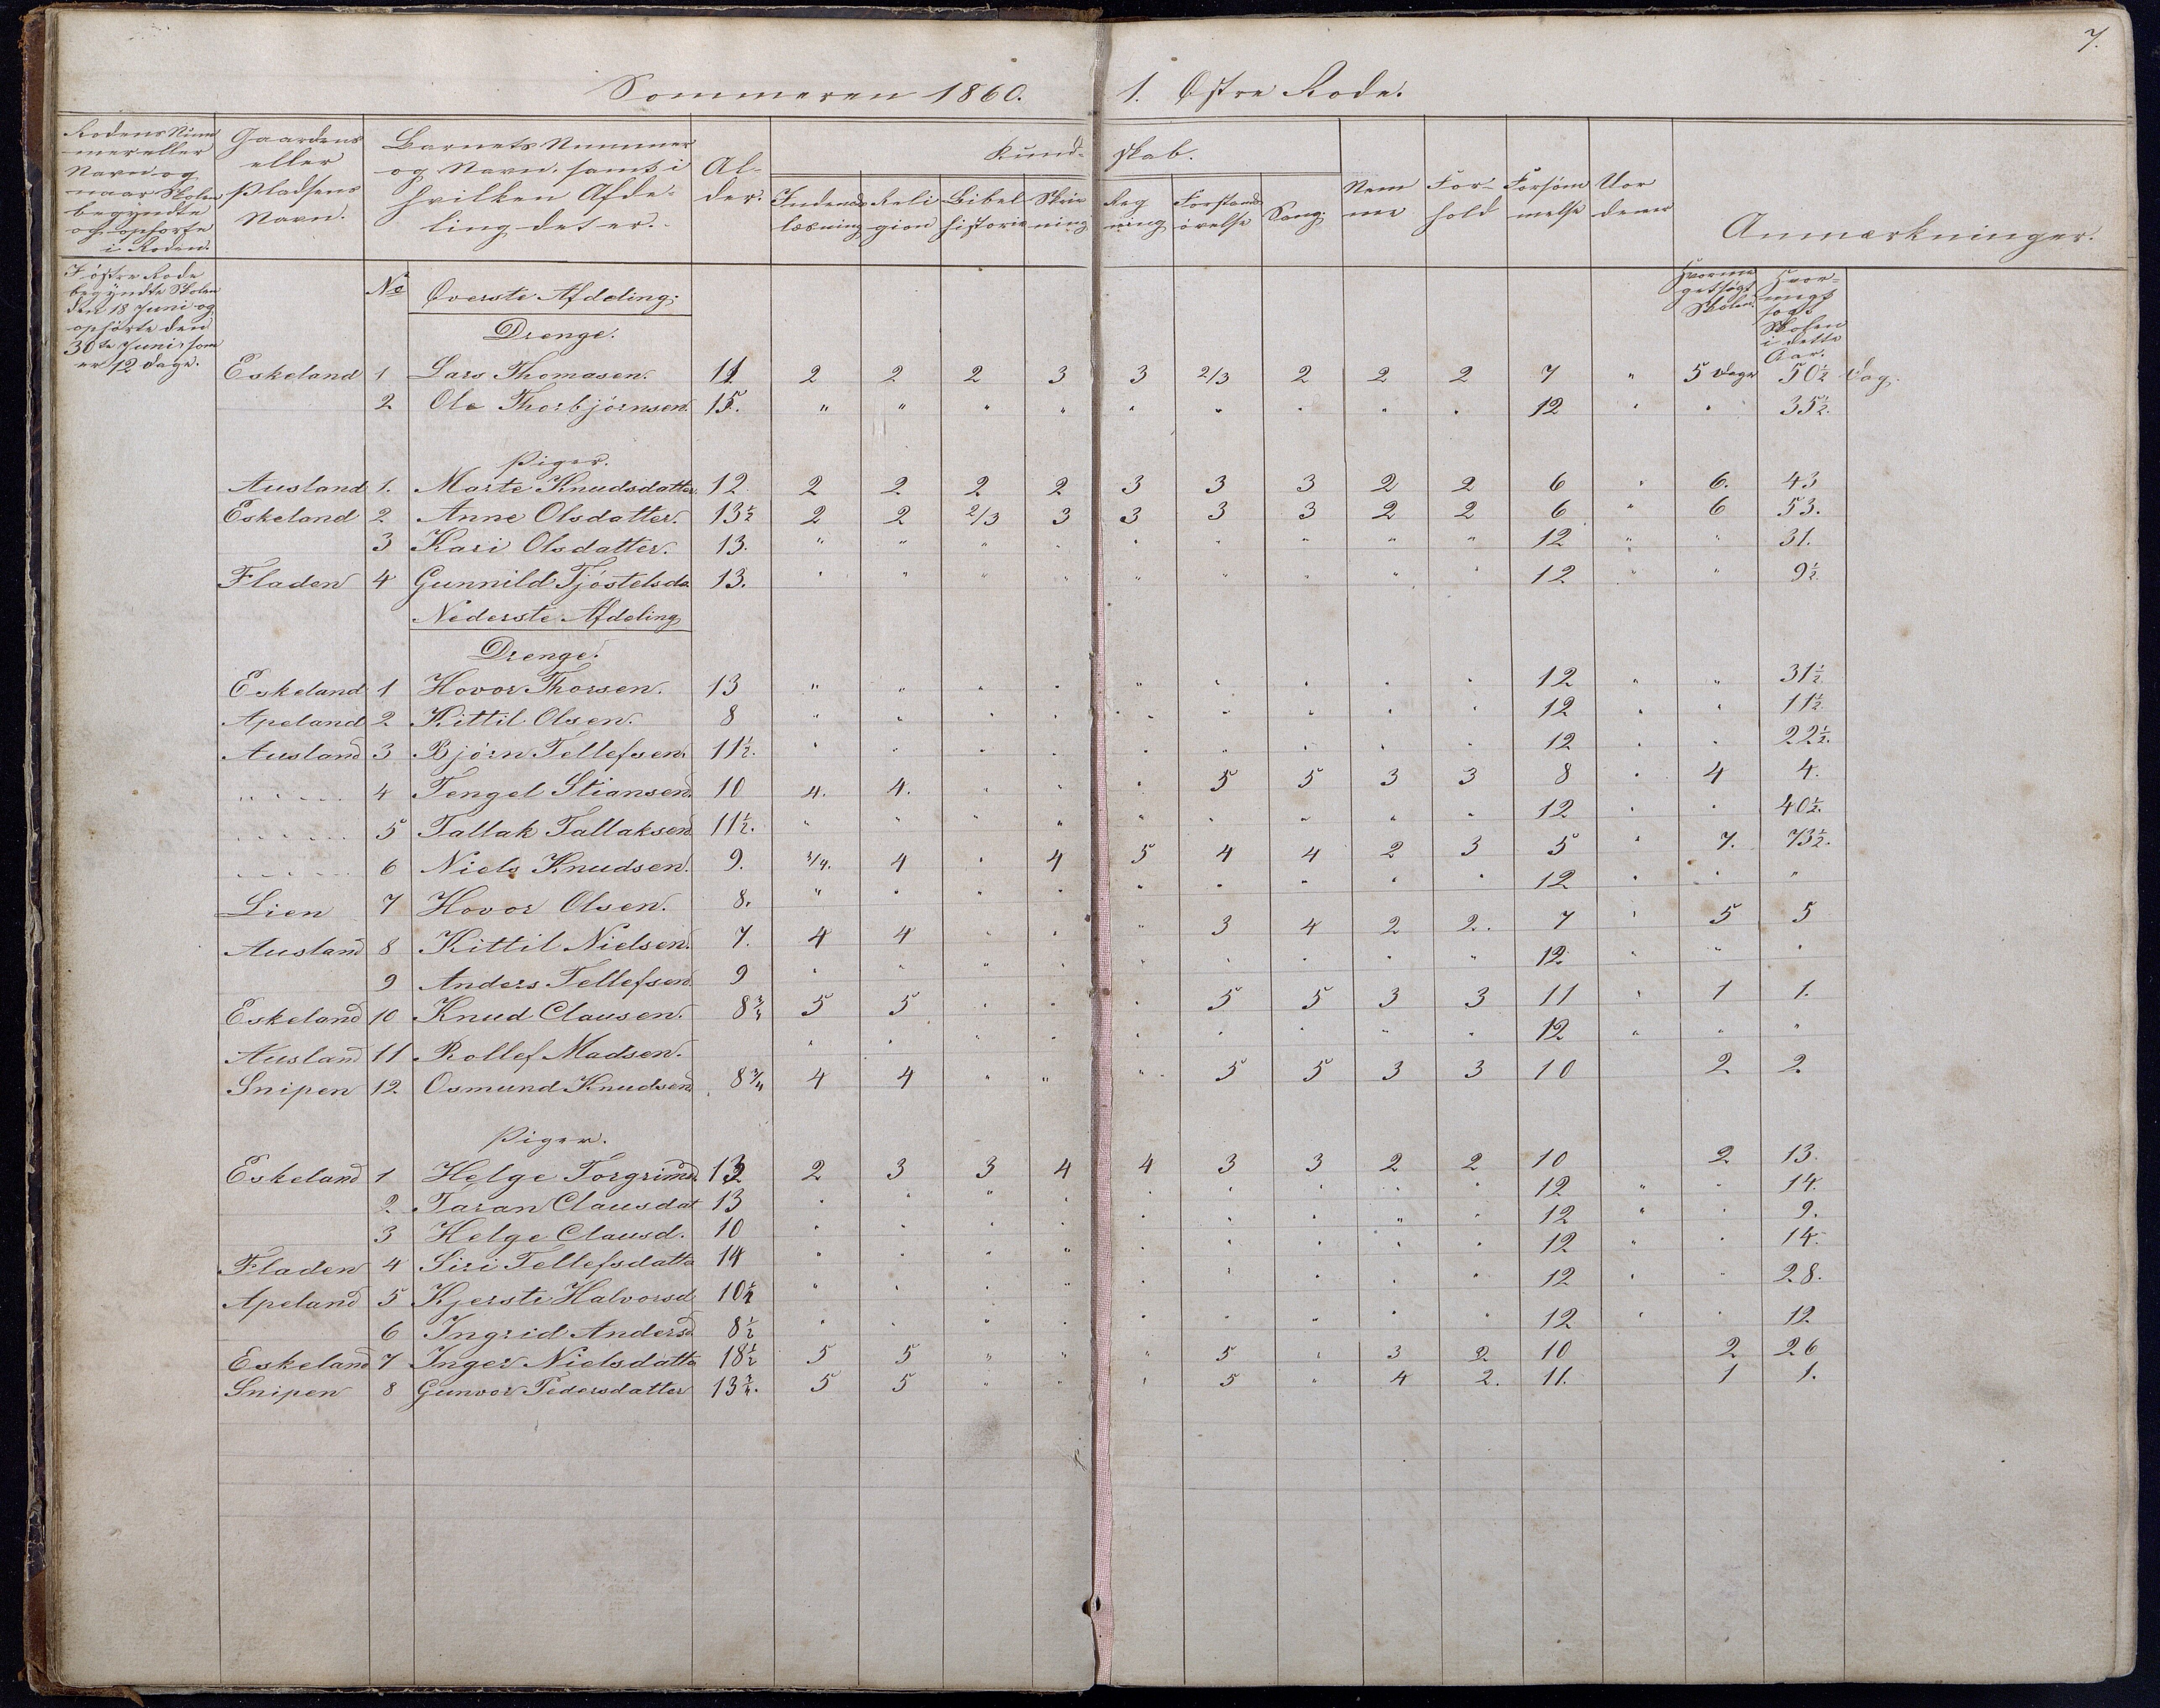 7.
Sommeren 1860. 1. Østre Rode.
Rodens Num
mer eller
Navn og
naar Skolen
begyndte
og ophørte
i Roden.
Gaardens
eller
Pladsens
Navn.
Barnets Nummer
og Navn, samt i
hvilken Afde-
ling det er.
Al-
der.
Kund- skab.
Indenads
læsning
Reli
gion
Bibel
historie
Skriv
ning
Reg
ning
Forstands
øvelse
Sang.
Nem
me
For-
hold
Forsøm
melse
Uor
dener
Anmærkninger.
I østre Rode
begyndte Skolen
den 18 Juni og
ophørte den
30te Juni som
er 12 Dage.
No Øverste Afdeling.
Hvorme
get søgt
Skolen.
Hvor-
meget
søgt
Skolen
i dette
Aar.
Drenge.
Eskeland 1 Lars Thomasen. 11 2 2 2 3 3 2/3 2 2 2 7 " 5 Dage 50½ Dag.
2 Ole Thorbjørnsen. 15. " " " " " " " " " 12 " " 35½.
Piger.
Ausland 1. Marte Knudsdatter. 12 2 2 2 2 3 3 3 2 2 6 " 6. 43
Eskeland 2 Anne Olsdatter. 13½ 2 2 2/3 3 3 3 3 2 2 6 " 6 53.
3 Kari Olsdatter. 13. " " " " " " " " " 12 " " 31.
Fladen 4 Gunnild Tjøstelsda 13. " " " " " " " " " 12 " " 9½
Nederste Afdeling
Drenge.
Eskeland 1 Hovor Thorsen. 13 " " " " " " " " " 12 " " 31½.
Apeland 2 Kittil Olsen. 8 " " " " " " " " " 12 " " 11½.
Ausland 3 Bjørn Tellefsen. 11½. " " " " " " " " " 12 " " 22½.
" " " 4 Tengel Stiansen. 10 4. 4. " " " 5 5 3 3 8 " 4 4.
" " " 5 Tallak Tallaksen 11½. " " " " " " " " " 12 " " 40½.
" " " 6 Niels Knudsen. 9. 3/4. 4 " 4 5 4 4 2 3 5 " 7. 73½.
Lien 7 Hovor Olsen. 8. " " " " " " " " " 12 " " "
Ausland 8 Kittil Nielsen. 7. 4 4 " " " 3 4 2 2. 7 " 5 5
9 Anders Tellefsen. 9 " " " " " " " " " 12 " " "
Eskeland 10 Knud Clausen. 8¾ 5 5 " " " 5 5 3 3 11 " 1 1.
Ausland 11 Rollef Madsen. " " " " " " " " " 12 " " "
Snipen 12 Osmund Knudsen 8¾ 4 4 " " " 5 5 3 3 10 2 2
Piger.
Eskeland 1 Helge Torgrimd. 13 2 3 3 4 4 3 3 2 2 10 2 13.
2 Taran Clausdat 13 " " " " " " " " " 12 " " 14.
3 Helge Clausd. 10 " " " " " " " " " 12 " " 9.
Fladen 4 Siri Tellefsdatte 14 " " " " " " " " " 12 " " 14.
Apeland 5 Kjersti Halvorsd 10½ " " " " " " " " " 12 " " 28.
6 Ingrid Andersd. 8½ " " " " " " " " " 12 " " 12
Eskeland 7 Inger Nielsdatte 18½ 5 5 " " " 5 " 3 2 10 2 26
Snipen 8 Gunvor Pedersdatter 13¾. 5 5 " " " 5 " 4 2. 11. 1 1.